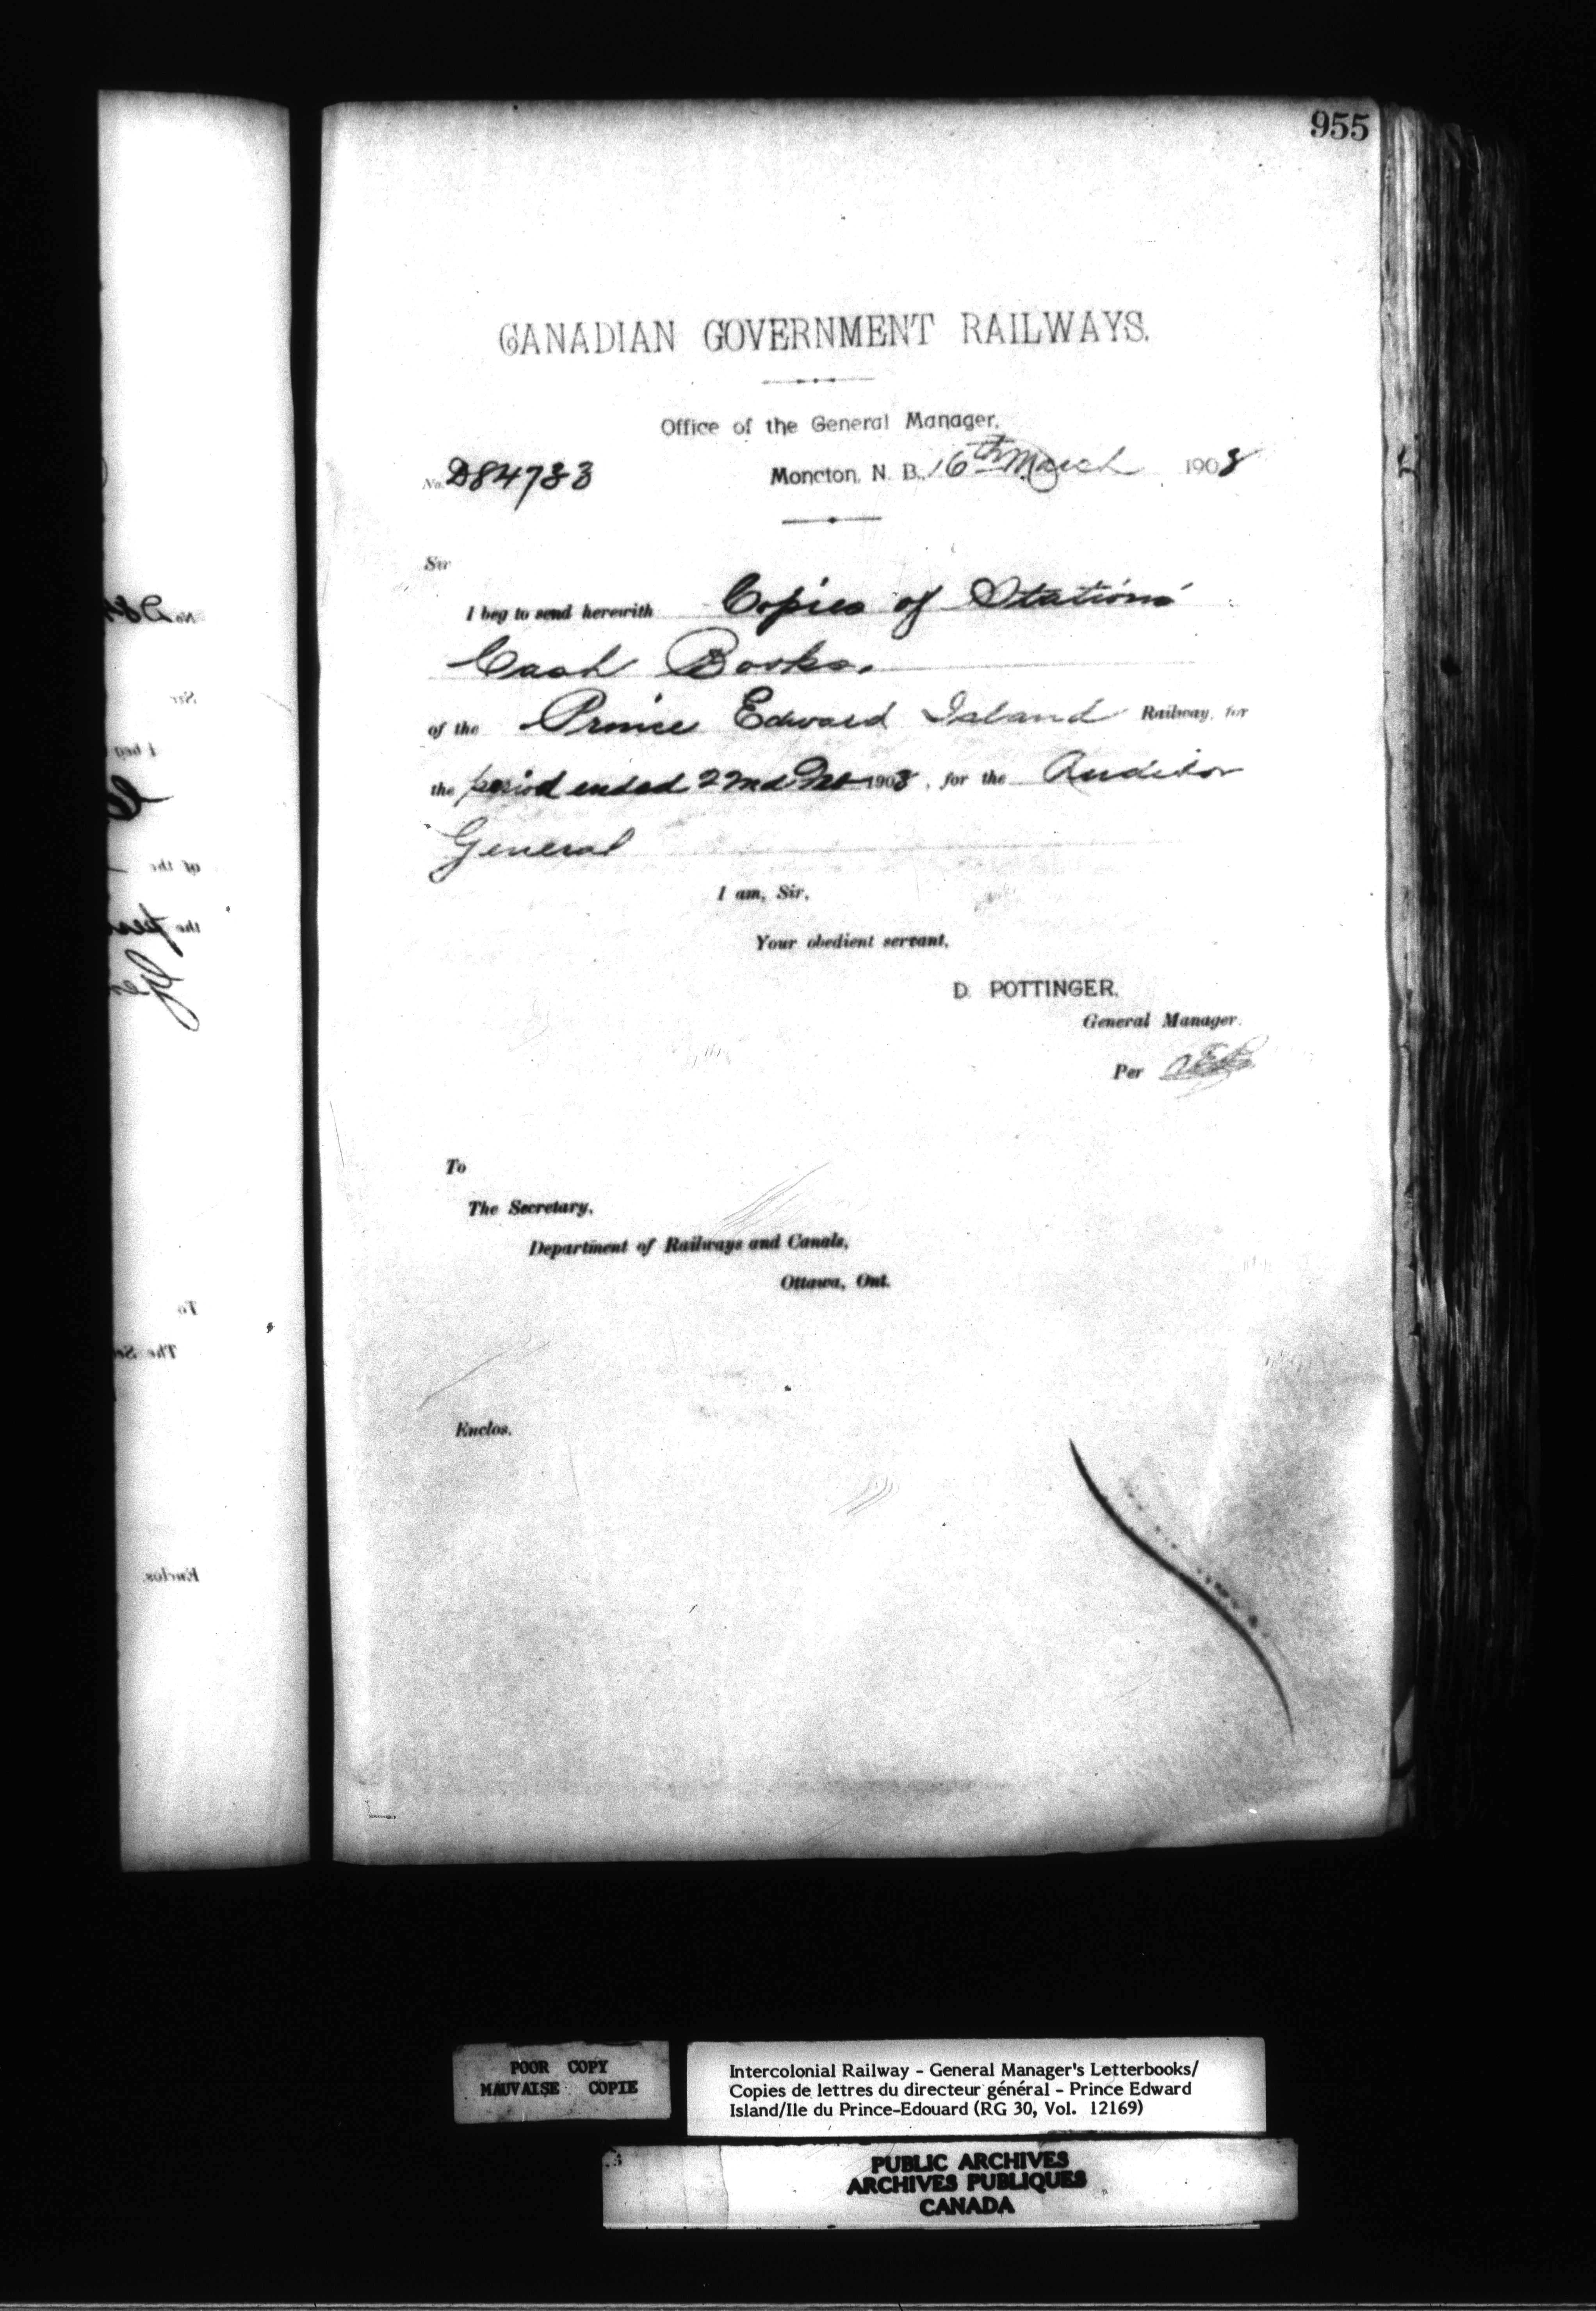 955
CANADIAN GOVERNMENT RAILWAYS.
Office of the General Manager,
No. D84733 Moncton, N. B., 16th March 1908
Sir
I beg to send herewith Copies of Stations'
Cash Books.
of the Prince Edward Island Railway, for
the period ended 22nd 1908, for the Auditor
General
I am, Sir,
Your obedient servant,
D. POTTINGER,
General Manager.
Per
To
The Secretary,
Department of Railways and Canals,
Ottawa, Ont.
Enclos.
POOR COPY
MAUVAISE COPIE
Intercolonial Railway - General Manager's Letterbooks/
Copies de lettres du directeur général - Prince Edward
Island/Ile du Prince-Edouard (RG 30, Vol. 12169)
PUBLIC ARCHIVES
ARCHIVES PUBLIQUES
CANADA